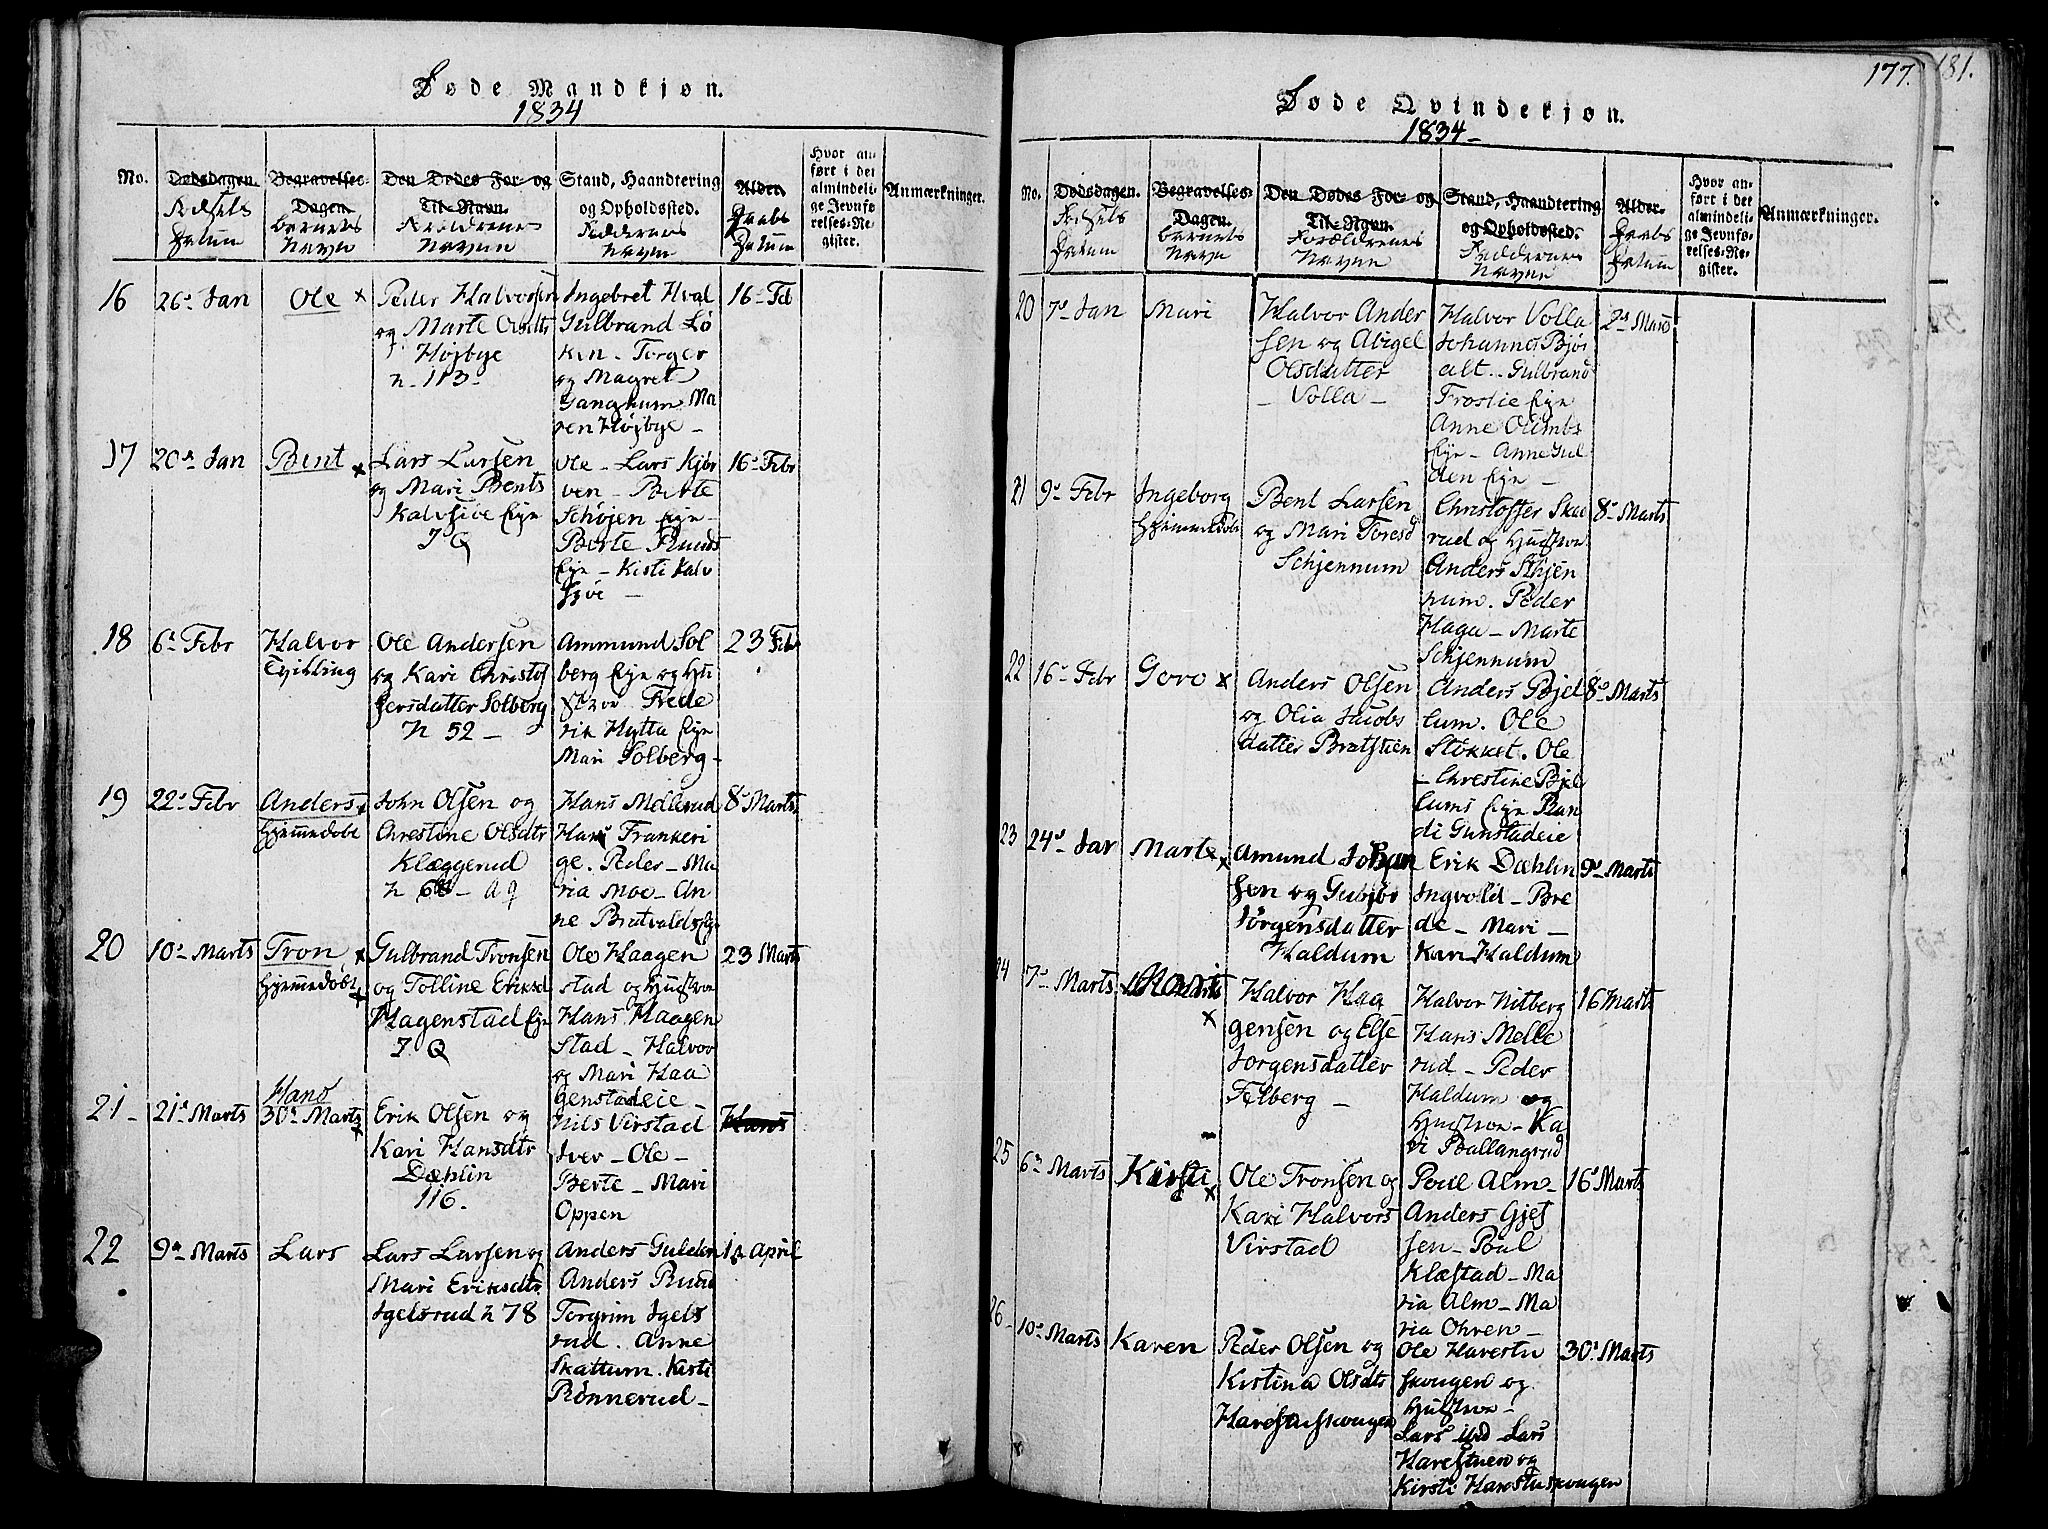 Døde Mandkjøn.
1834
No.
Dødsdagen.
Fødsels
Datum
Begravelses-
Dagen.
Barnets
Navn
Den Dødes For- og
Til-Navn.
Forældrenes
Navne
Stand, Haandtering
og Opholdssted.
Faddernes
Navne
Alder.
Daabs
Datum
Hvor an-
ført i det
almindeli-
ge Jevnfø-
relses-Re-
gister.
Anmærkninger.
16
26de Jan
Ole x
Peder Halvorsen
og Marte Olsdtr
Højbye
n. 113
Ingebret Hval
Gulbrand Lø
ken - Torger
og Magret
Ganghum Ma
ren Højbye -
16 Feb
17
20de Jan
Bent x
Lars Larsen
og Mari Bents
Kalvsjøe Eje
I Q
Ole - Lars Kjør
ven - Berte
Schøjen Eje -
Berte Ruuds
Eje - Kisti Kalv
sjøe -
16 Febr
18
6te Febr
Halvor
Tvilling
Ole Andersen
og Kari Christof
fersdatter Solberg
n 52 -
Ammund Sol
berg Eje og Hu
strue Frede
rik Hytta Eje
Mari Solberg -
23 Feb
19
22de Febr
Anders x
Hjemmedøbt
John Olsen og
Chrestine Olsdtr
Klæggerud
n 68 - a q
Hans Mellerud
Hans Frankeri
ge. Peder - Ma
ria Moe - An
ne Bratvalds Eje
8de Marts
20
10de Marts
Tron x
Hjemmedøbt x
Gulbrand Tronsen
og Tolline Eriksd
Hagenstad Eje
I Q
Ole Haagen
stad og Hustroe
Hans Haagen
stad - Halvor
og Mari Haa
genstadeie -
23 Marts
21 -
21de Marts
Hans
30te Marts x
Erik Olsen og
Kari Hansdtr
Dæhlin
116.
Nils Virstad
Iver - Ole -
Berte - Mari
Oppen
Hans
22
9de Marts
Lars
Lars Larsen og
Mari Eriksdtr
Igelsrud n 78
Anders Gulden
Anders Ruud
Torgrim Igels
rud. Anne
Skattum. Kisti
Rönnerud -
1te April
177.
181.
Døde Qvindekjøn.
1834 -
No.
Dødsdagen.
Fødsels
Datum
Begravelses-
Dagen.
Barnets
Navn
Den Dødes For- og
Til-Navn.
Forældrenes
Navne
Stand, Haandtering
og Opholdssted.
Faddernes
Navne
Alder.
Daabs
Datum
Hvor an-
ført i det
almindeli-
ge Jevnfø-
relses-Re-
gister.
Anmærkninger.
20
7de Jan
Mari
Halvor Ander
sen og Abigel
Olsdatter
- Volla -
Halvor Volla
Johannes Bjør
alt - Gulbrand
Frøslie Eje
Anne Olimbs
Eje - Anne Gul
den Eje -
2de Marts
21
9de Febr
Ingeborg
Hjemmedøbt
Bent Larsen
og Mari Toresd
Schjennum
Christoffer Skae
rud og Hustroe
Anders Schjen
num. Peder
Haga - Marte
Schjennum
8de Marts
22
16de Febr
Goro x
Anders Olsen
og Olia Jacobs
datter Bratstien
Anders Bjel
lum. Ole
Støkket. Ole
- Chrestine Bjel
lums Eje Ran
di Gunstadeie
8de Marts
23
24de Jan
Marte x
Amund Johan
sen og Gubjør
Jörgensdatter
Haldum
Erik Dæhlin
Ingvold - Bre
de - Mari -
Kari Haldum
9de Marts
24
7de Marts
Mari
x
Halvor Haa
gensen og Else
Jorgensdatter
Felberg -
Halvor Nitberg
Hans Melle
rud - Peder
Haldum og
Hustroe - Ka
ri Ballangrud
16 Marts
25
6te Marts
Kirsti x
Ole Tronsen og
Kari Halvors
Virstad
Poul Alm -
Anders Gjef
sen - Poul
Klæstad - Ma
ria Alm - Ma
ria Ohren -
16de Marts
26 -
10de Marts
Karen
Peder Olsen og
Kistina Olsdtr
Harestuskougen
Ole Harestu
skougen og
Hustroe -
Lars
Harestuen og
Kirsti Harestuskougen
30te Marts